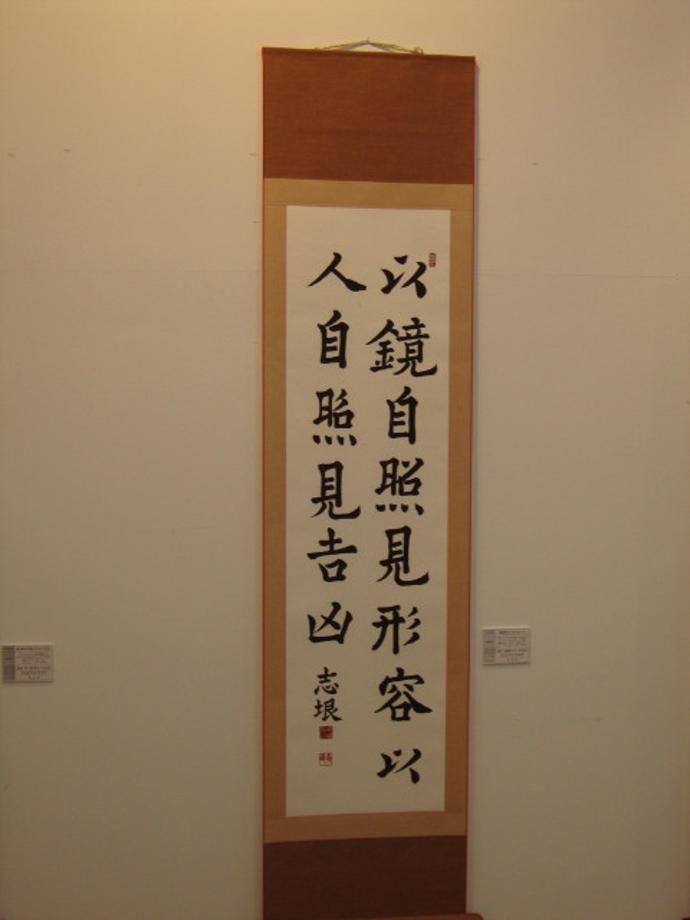 以鏡自照見形容以
人自照見吉凶
志垠